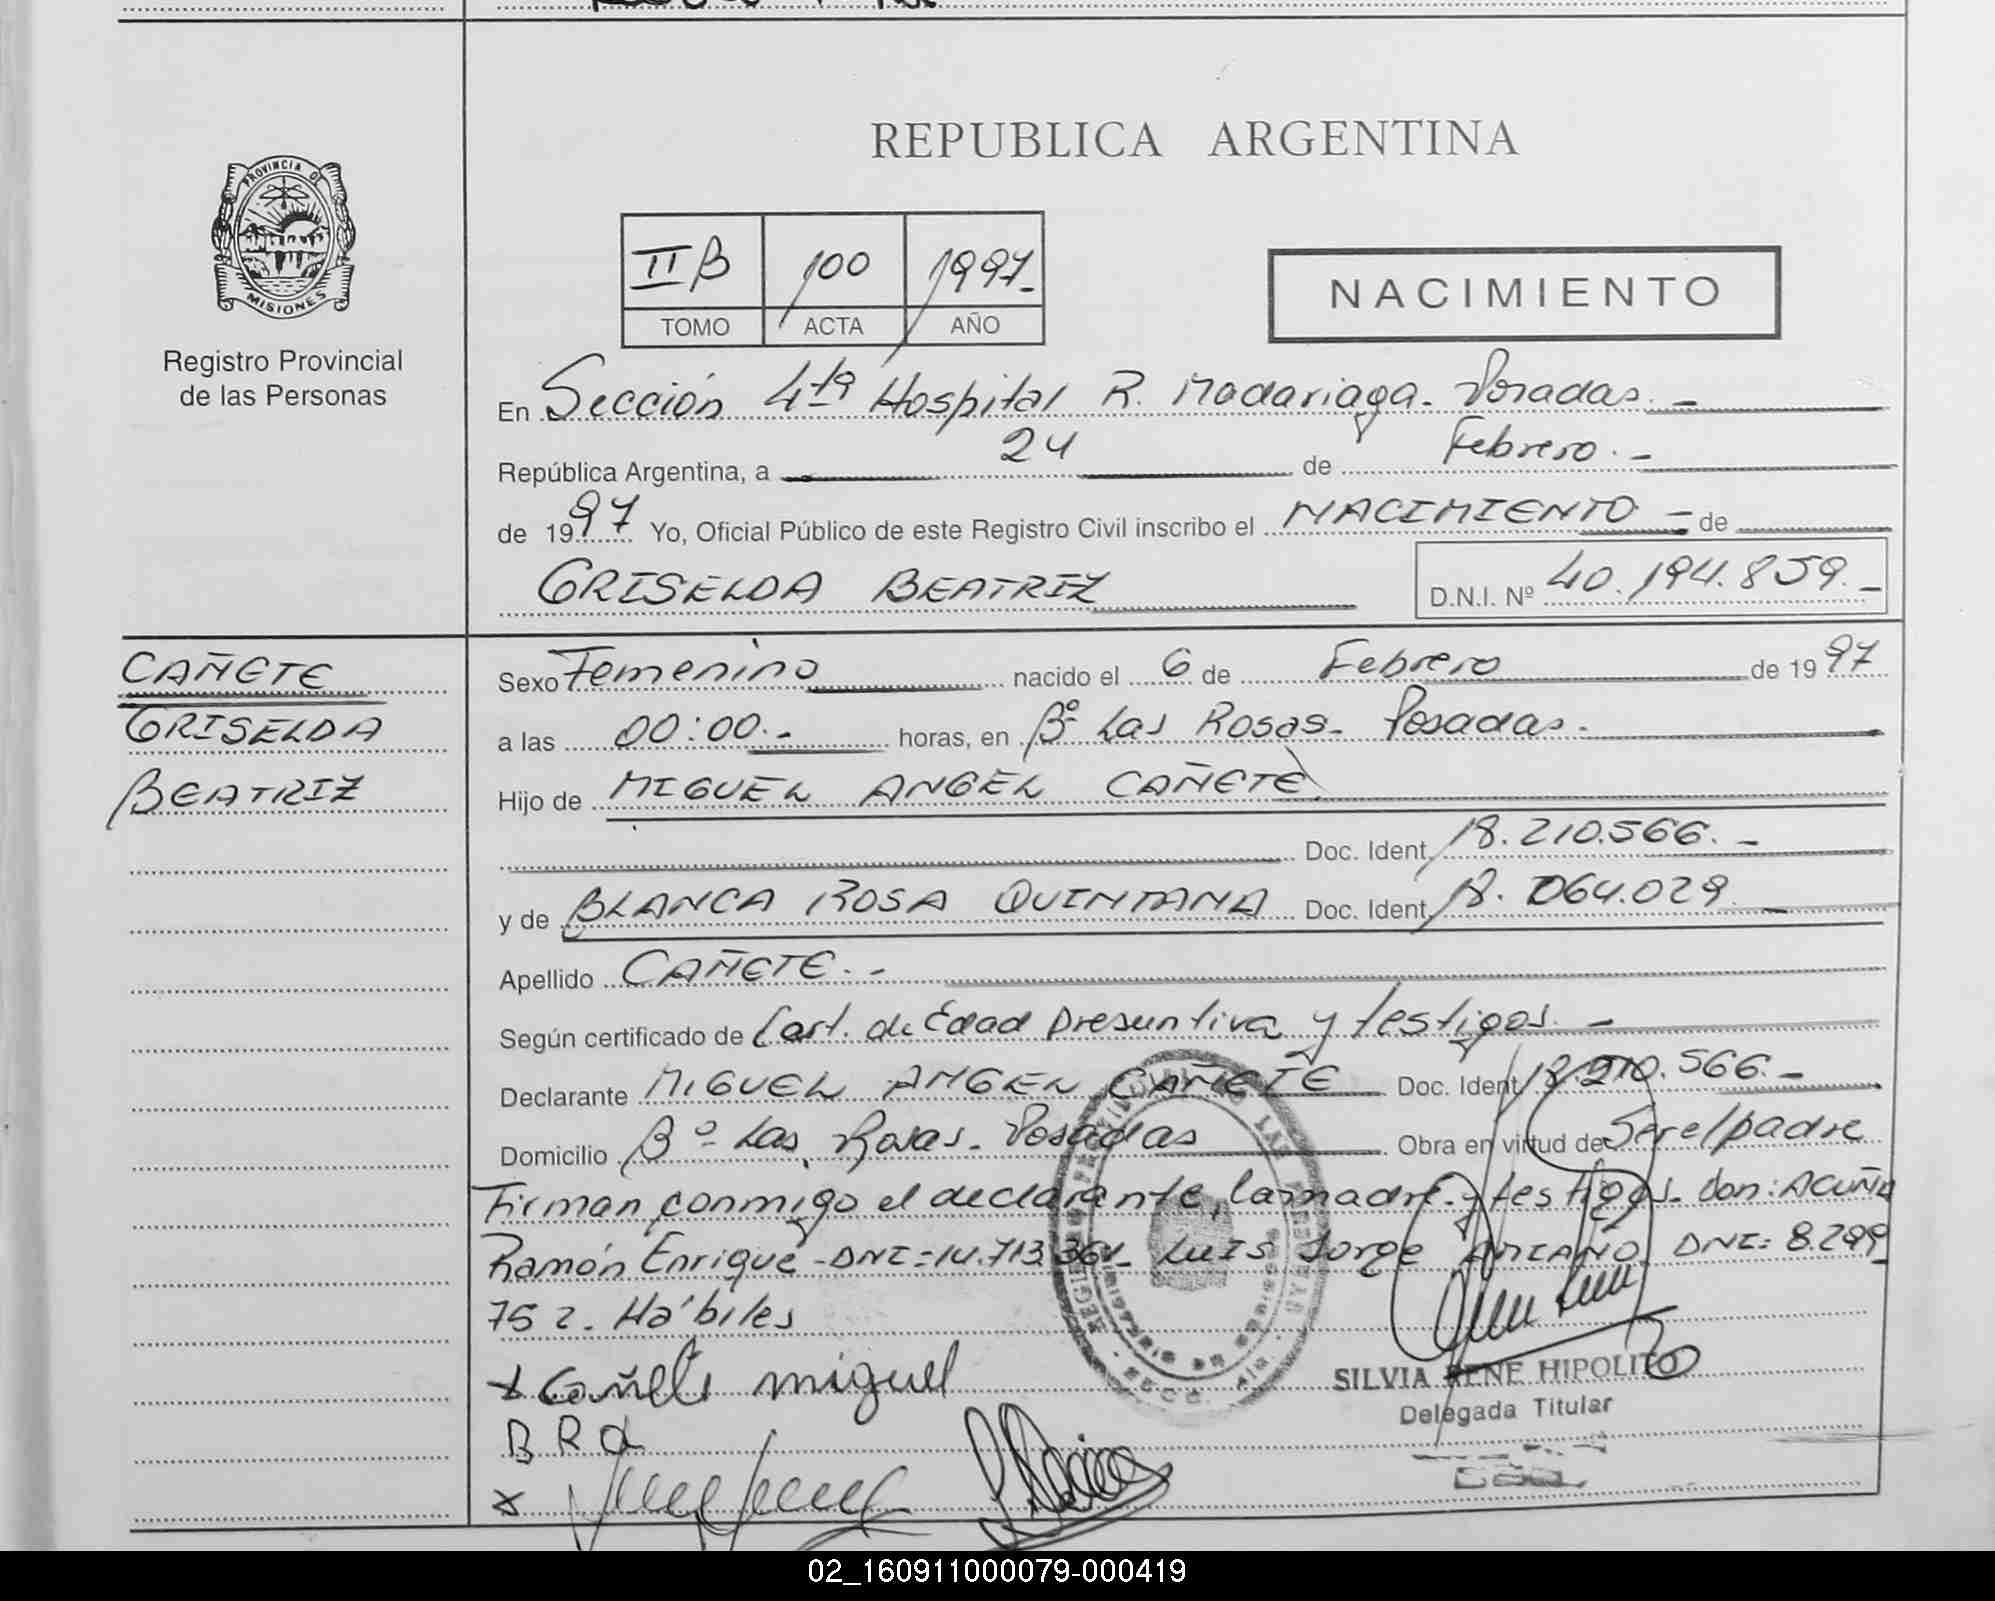 REPUBLICA ARGENTINA
PROVINCIA DE
MISIONES
Registro Provincial
de las Personas
II B 100 1997.-
TOMO ACTA AÑO
NACIMIENTO
En Sección 4ta Hospital R. Madariaga. Posadas.-
República Argentina, a 24 de Febrero.-
de 1997 Yo, Oficial Público de este Registro Civil inscribo el NACIMIENTO - de
GRISELDA BEATRIZ D.N.I. Nº 40.194.859.-
CAÑETE
GRISELDA
BEATRIZ
Sexo Femenino nacido el 6 de Febrero de 1997
a las 00:00.- horas, en Bº Las Rosas- Posadas.
Hijo de MIGUEL ANGEL CAÑETE
Doc. Ident. 18.210.566.-
y de BLANCA ROSA QUINTANA Doc. Ident. 18.064.029
Apellido CAÑETE.-
Según certificado de Cart. de Edad presuntiva y testigos.-
Declarante MIGUEL ANGEL CAÑETE Doc. Ident. 18.210.566.-
Domicilio Bº Las Rosas- Posadas Obra en virtud de Ser el padre
Firman conmigo el declarante, la madre y testigos. don: ACUÑA
Ramón Enrique - DNI = 14.713.361- LUIS Jorge DNI: 8.299
752. Hábiles
x Cañete miguel
SILVIA RENE HIPOLITO
Delegada Titular
B R Q
x
02_160911000079-000419